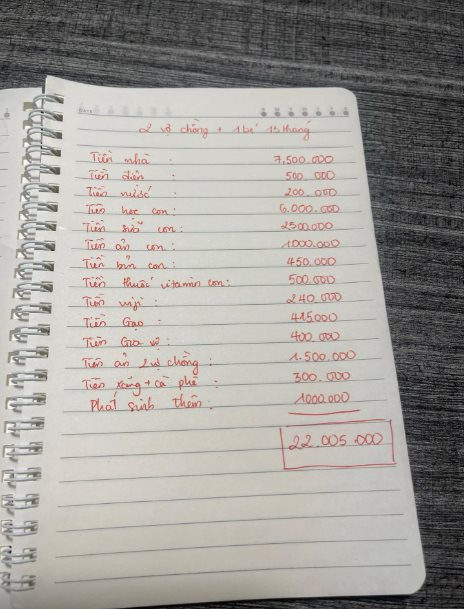 DATE
2 vợ chồng + 1 bé 13 tháng
Tiền nhà : 7,500.000
Tiền điện : 500.000
Tiền nước : 200.000
Tiền học con : 6.000.000
Tiền sữa con : 2500000
Tiền ăn con : 1.000.000
Tiền bỉm con : 450.000
Tiền thuốc vitamin con : 500.000
Tiền wifi : 240.000
Tiền Gạo : 415.000
Tiền Gia vị : 400.000
Tiền ăn 2 vợ chồng : 1.500.000
Tiền xăng + cà phê : 300.000
Phát sinh thêm : 1000.000
22.005.000